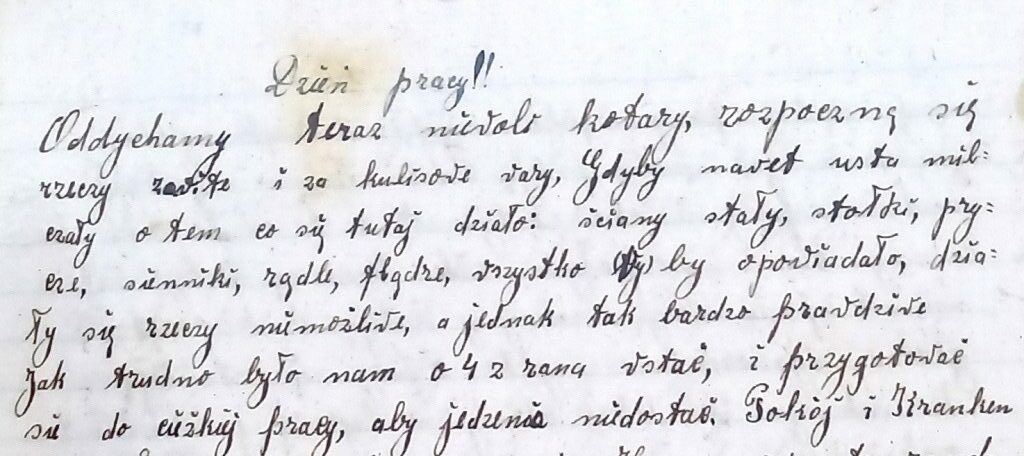 Dzień pracy!!
Oddychamy teraz niedola kotary, rozpoczną się
rzeczy i za kulisowe Gdyby nawet usta mil-
czały o tem co się tutaj działo: ściany stały, stołki, pry-
cze, sienniki, wszystko by opowiadało, dzia-
ły się rzeczy niemożliwe, a jednak tak bardzo prawdziwe
Jak trudno było nam o 4 z rana wstać, i przygotować
się do ciężkiej pracy, aby jedzenia niedostać. Pokój i Kranken